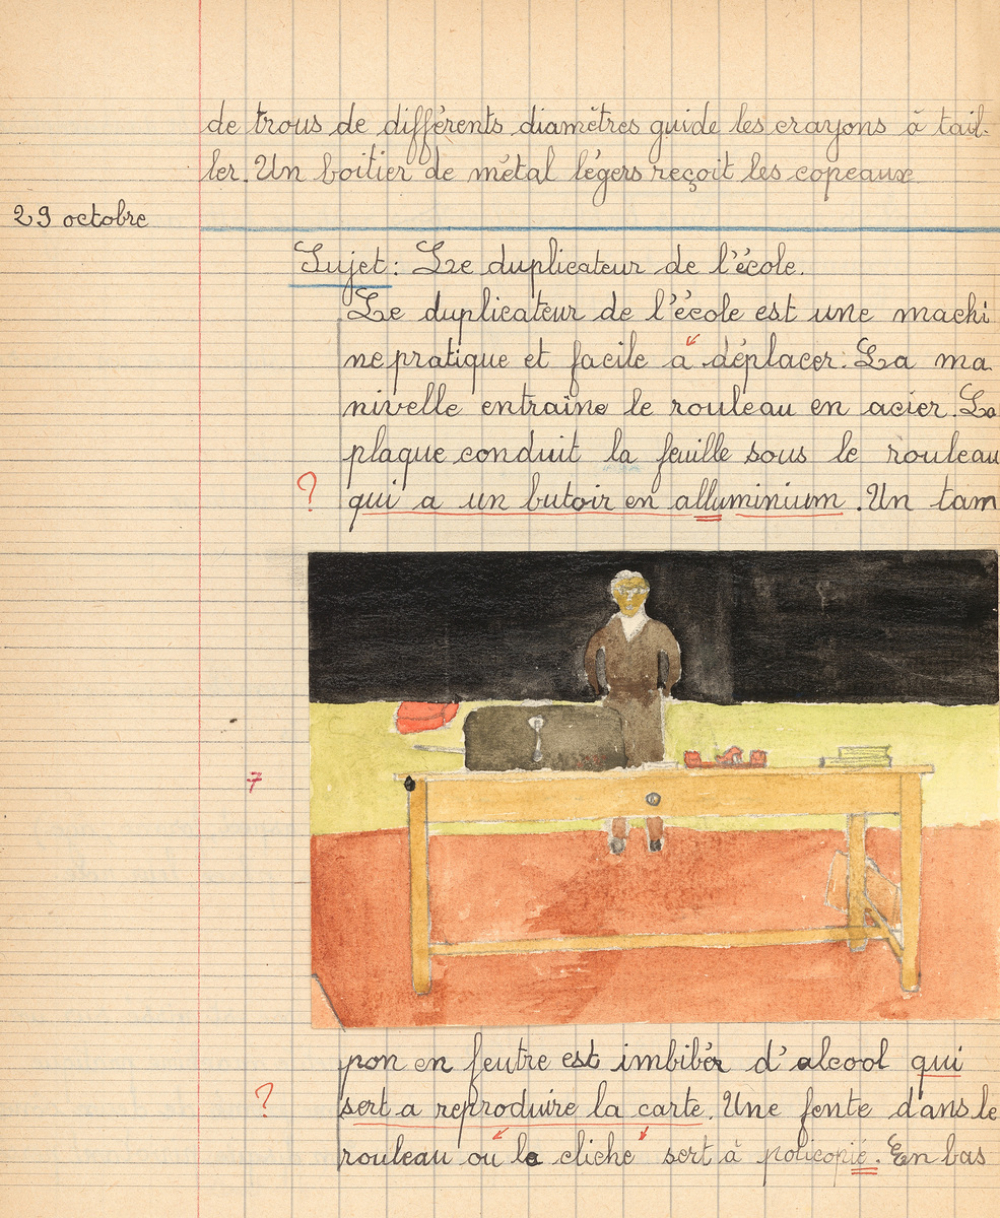 de trous de différents diamètres guide les crayons à tail-
ler. Un boitier de métal légers reçoit les copeaux
29 octobre
Sujet : Le duplicateur de l'école.
Le duplicateur de l'école est une machi
ne pratique et facile à déplacer. La ma
nivelle entraine le rouleau en acier. La
plaque conduit la feuille sous le rouleau
? qui a un butoir en alluminium . Un tam
7
pon en feutre est imbibér d'alcool qui
? sert a reproduire la carte. Une fente dans le
rouleau où le cliché sert à policopié. En bas